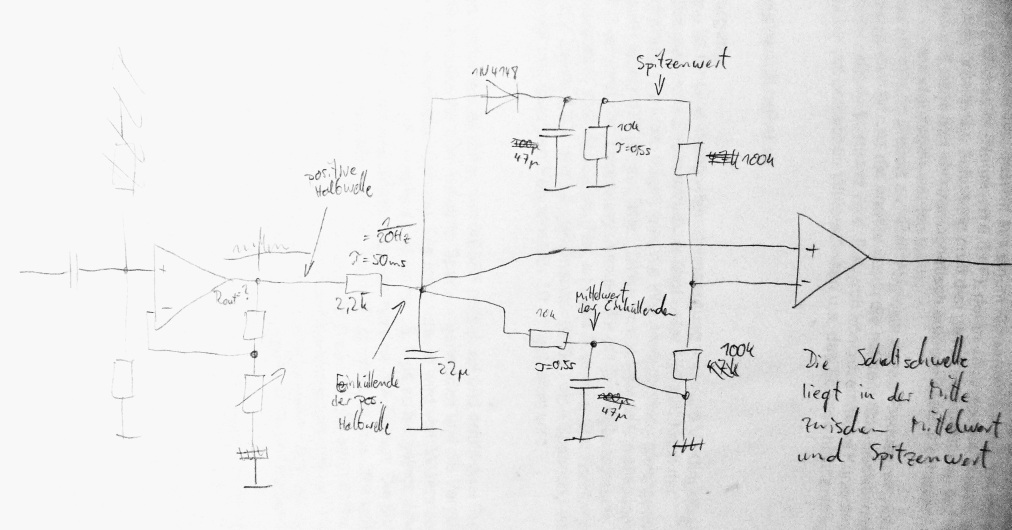 1N4148
Spitzenwert
10k
τ=0,5s
47µ
100k
positive
Halbwelle
= 1/20Hz
τ=50ms
2,2k
Rout?
+
-
22µ
Einhüllende
der pos.
Halbwelle
10k
τ=0,5s
Mittelwert
der Einhüllenden
47µ
100k
+
-
Die Schaltschwelle
liegt in der Mitte
zwischen Mittelwert
und Spitzenwert